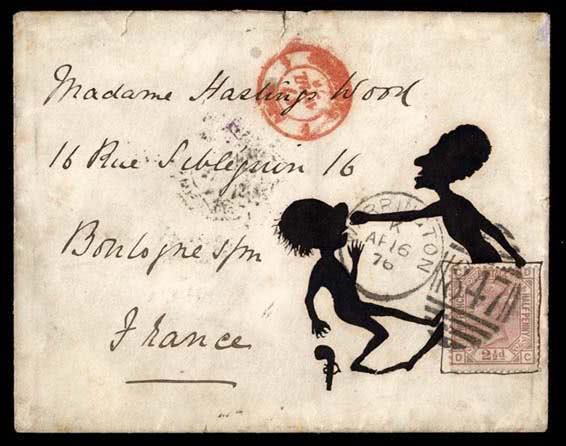 Madame Hastings Wood
16 Rue Siblequin 16
Boulogne s/m
France
BRRINGTON
K
AP 16
76
847
HALFPENNY
D C
2½d